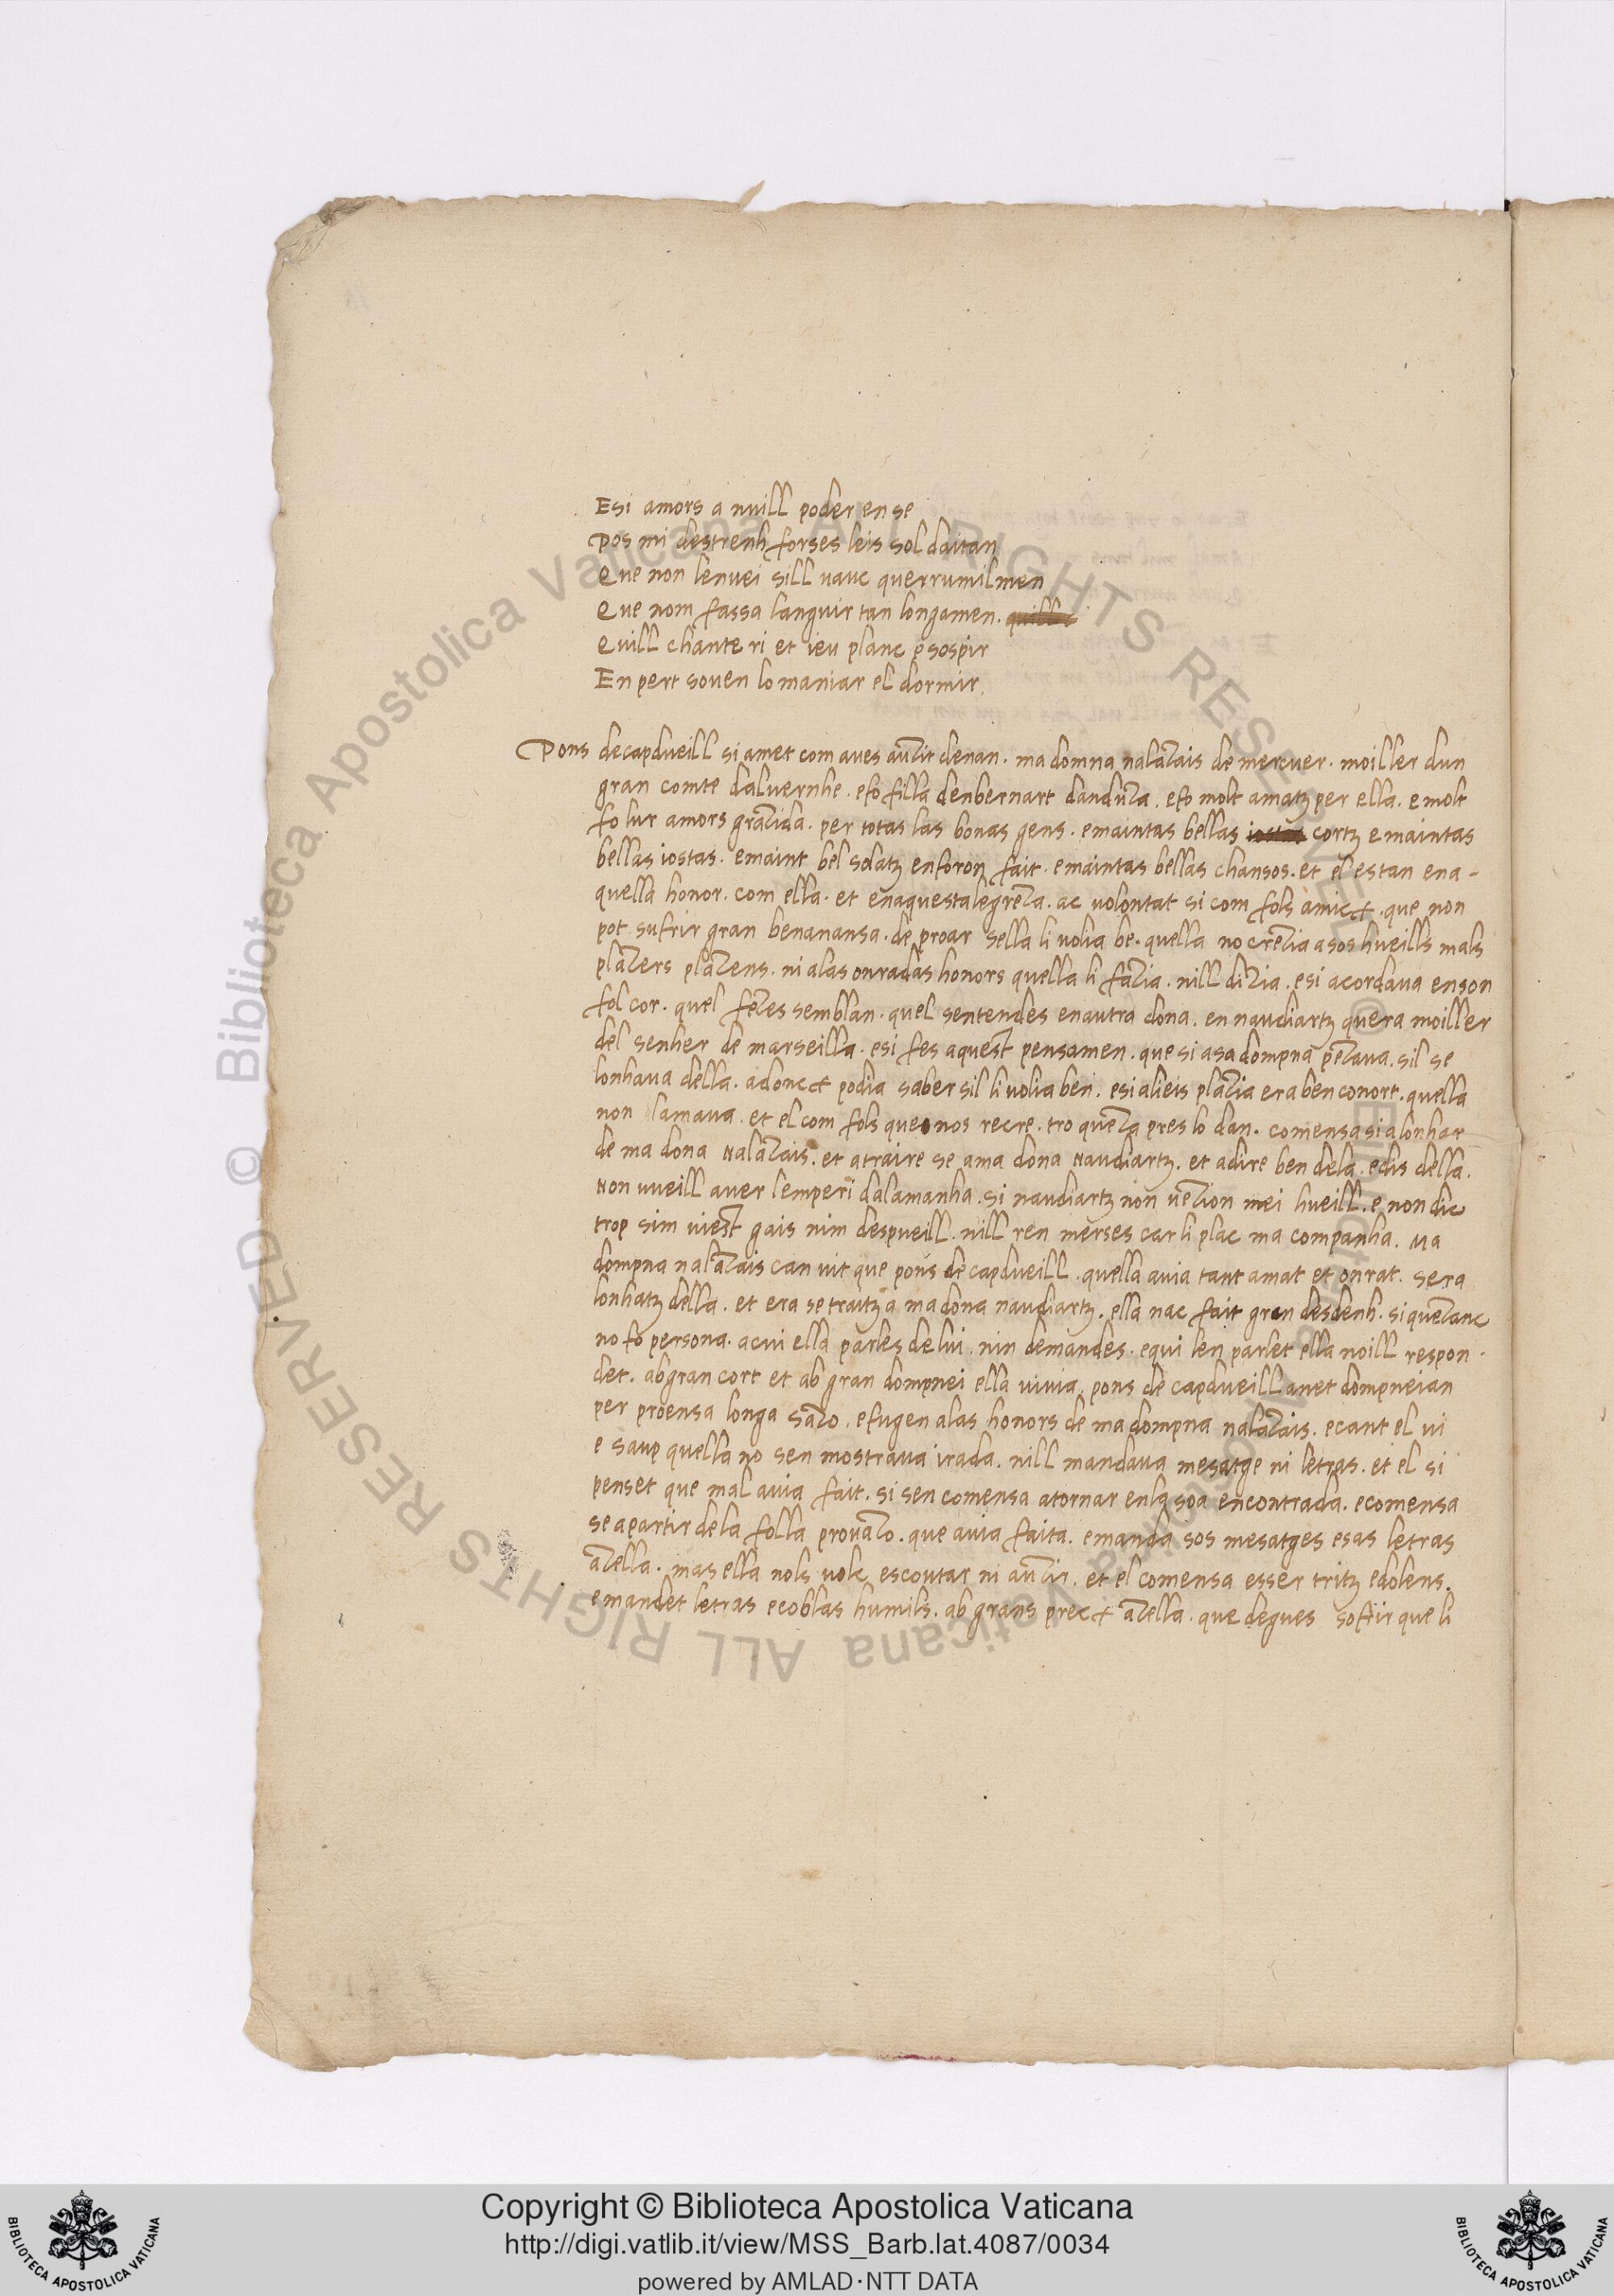 Esi amors a nuill poder en se
Pos mi destrenh forses leis sol daitan
Que non lenuei sill uauc querrumilmen
Que nom fassa languir tan longamen.
Quill chante ri et ieu planc e sospir
En pert souen lo maniar el dormir.
Pons decapdueill si amet com aues auzit denan. ma domna nalazais de mercuer. moiller dun
gran comte daluernhe. efo filla denbernart danduza. efo molt amatz per ella. e molt
fo lur amors grazida. per totas las bonas gens. emaintas bellas iostas cortz e maintas
bellas iostas. emaint bel solatz enforon fait. emaintas bellas chansos. et el estan ena-
quella honor. com ella. et enaquestalegreza. ac uolontat si com fols amicx. que non
pot sufrir gran benanansa. de proar sella li uolia be. quella no crezia a sos hueills mals
plazers plazens. ni alas onradas honors quella li fazia. nill dizia. esi acordaua enson
fol cor. quel fezes semblan. quel sentendes enautra dona. en naudiartz quera moiller
del senher de marseilla. esi fes aquest pensamen. que si asa dompna pezaua. sil se
lonhaua della. adoncx podia saber sil li uolia ben. esi alieis plazia era ben conort. quella
non lamaua. et el com fols que nos recre. tro queza pres lo dan. comensa si alonhar
de ma dona Nalazais. et atraire se ama dona Naudiartz. et adire ben dela. edis della.
Non uueill auer lemperi dalamanha. si naudiartz non uezion mei hueill. e non dic
trop sim uiest gais nim despueill. nill ren merses car li plac ma companha. Ma
dompna nalazais can uit que pons de capdueill. quella auia tant amat et onrat. sera
lonhatz della. et era se traitz a ma dona naudiartz. ella nac fait gran desdenh. si quezanc
no fo persona. acui ella parles de lui. nin demandes. equi len parlet ella noill respon.
det. ab gran cort et ab gran dompnei ella uiuia. pons de capdueill anet dompneian
per proensa longa sazo. efugen alas honors de ma dompna nalazais. ecant el ui
e saup quella no sen mostraua irada. nill mandaua mesatge ni letras. et el si
penset que mal auia fait. si sen comensa atornar enla soa encontrada. ecomensa
se apartir dela folla prouazo. que auia faita. emanda sos mesatges esas letras
azella. mas ella nols uolc escoutar ni auzir. et el comensa esser tritz edolens.
emandet letras ecoblas humils. ab grans precx azella. que degues sofrir que li
Copyright © Biblioteca Apostolica Vaticana
http://digi.vatlib.it/view/MSS_Barb.lat.4087/0034
powered by AMLAD·NTT DATA
BIBLIOTECA APOSTOLICA VATICANA
BIBLIOTECA APOSTOLICA VATICANA
© Biblioteca Apostolica Vaticana ALL RIGHTS RESERVED
© Biblioteca Apostolica Vaticana ALL RIGHTS RESERVED